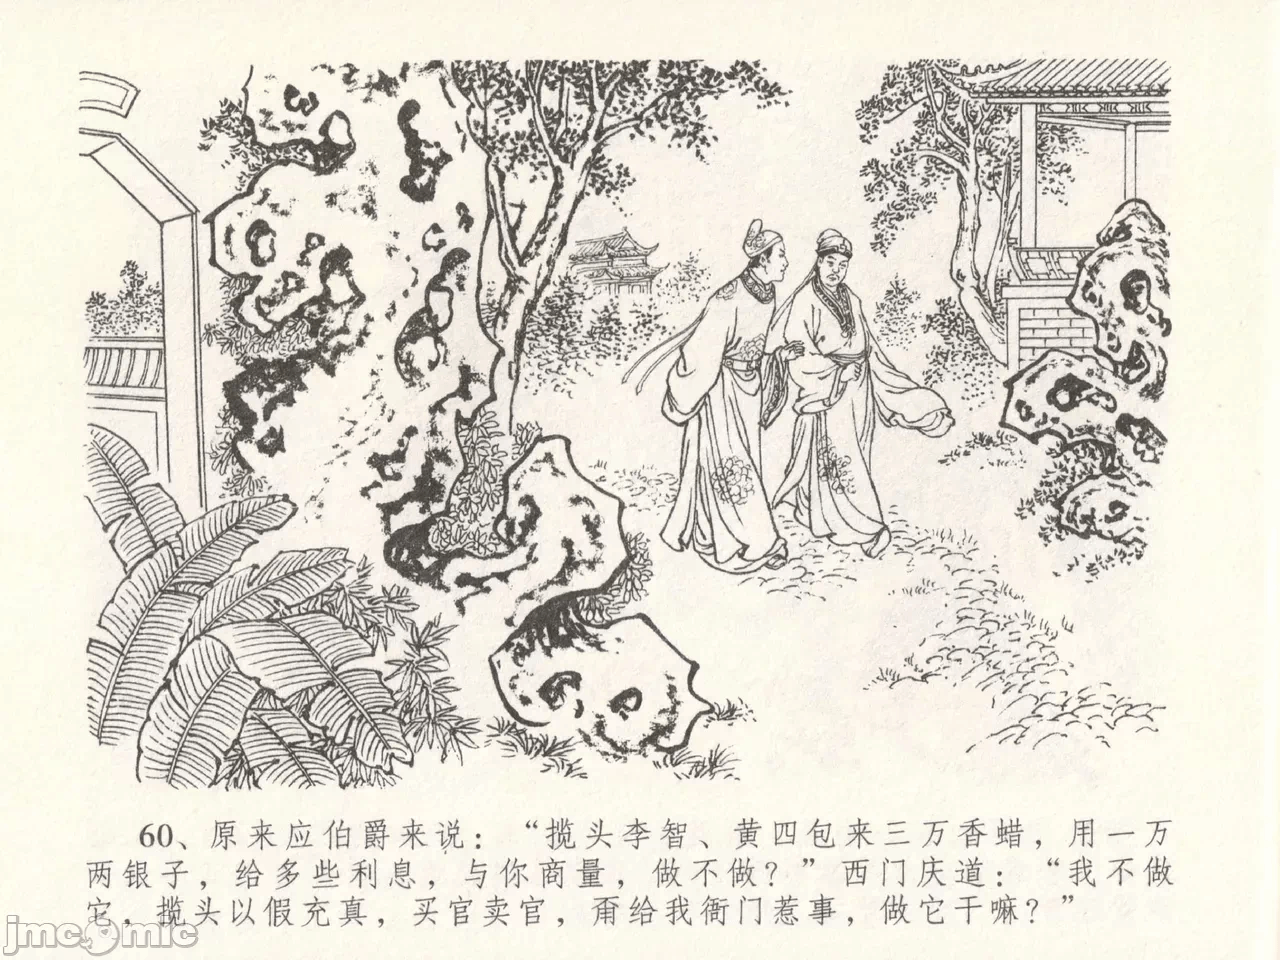 60、原来应伯爵来说：“揽头李智、黄四包来三万香蜡，用一万
两银子，给多些利息，与你商量，做不做？” 西门庆道：“我不做
它，揽头以假充真，买官卖官，甭给我衙门惹事，做它干嘛？”
jmcomic